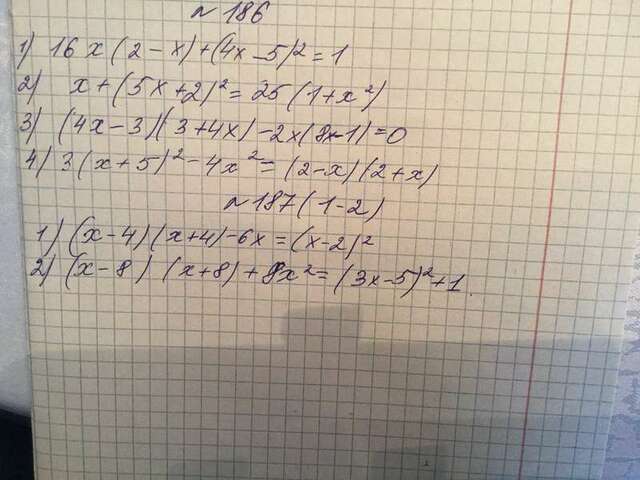 N 186
1) 16x(2-x)+(4x-5)²=1
2) x+(5x+2)²=25(1+x²)
3) (4x-3)(3+4x)-2x(8x-1)=0
4) 3(x+5)²-4x²=(2-x)(2+x)
N 187 (1-2)
1) (x-4)(x+4)-6x=(x-2)²
2) (x-8)(x+8)+8x²=(3x-5)²+1